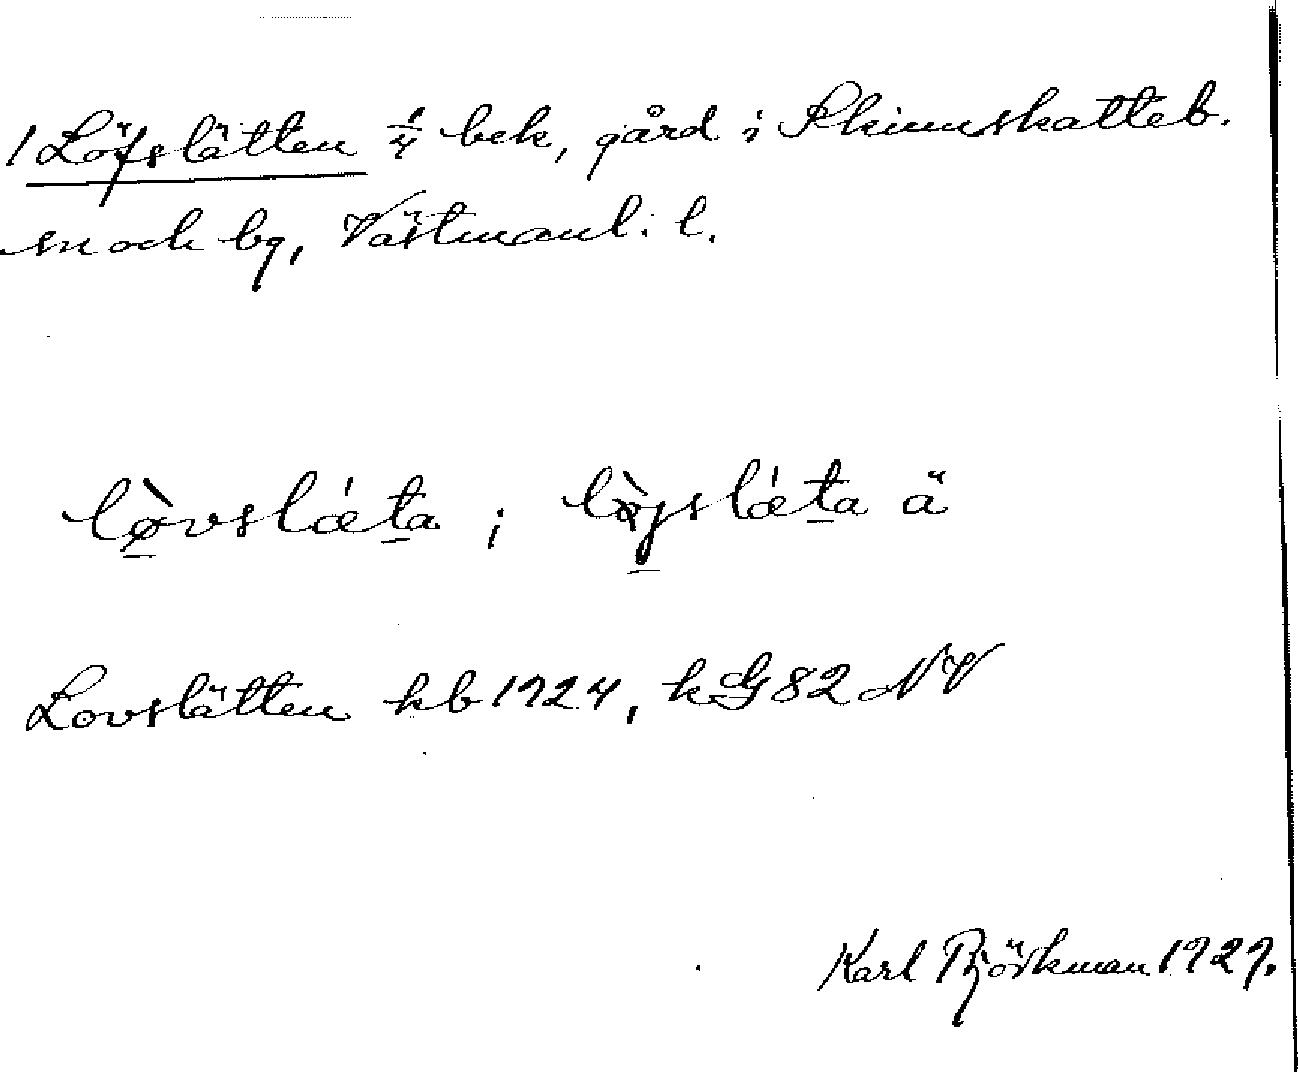 1 Löfslätten 1/4 bek, gård i Skinnskatteb.
sn och bg, Västmanl: l.
lø̀vslǽta ; lø̀jslǽta ä
Lovslätten kb 1924, kG 82 NV
Karl Björkman 1929.